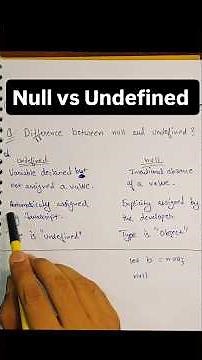 Null vs Undefined
Q. Difference between null and undefined?
undefined
null
Variable declared but
not assigned a value.
Automatically assigned
Javascript.
is "undefined"
Intentional absence
of a value.
Explicitly assigned by
the developer.
Type is "Object"
let b = null;
null